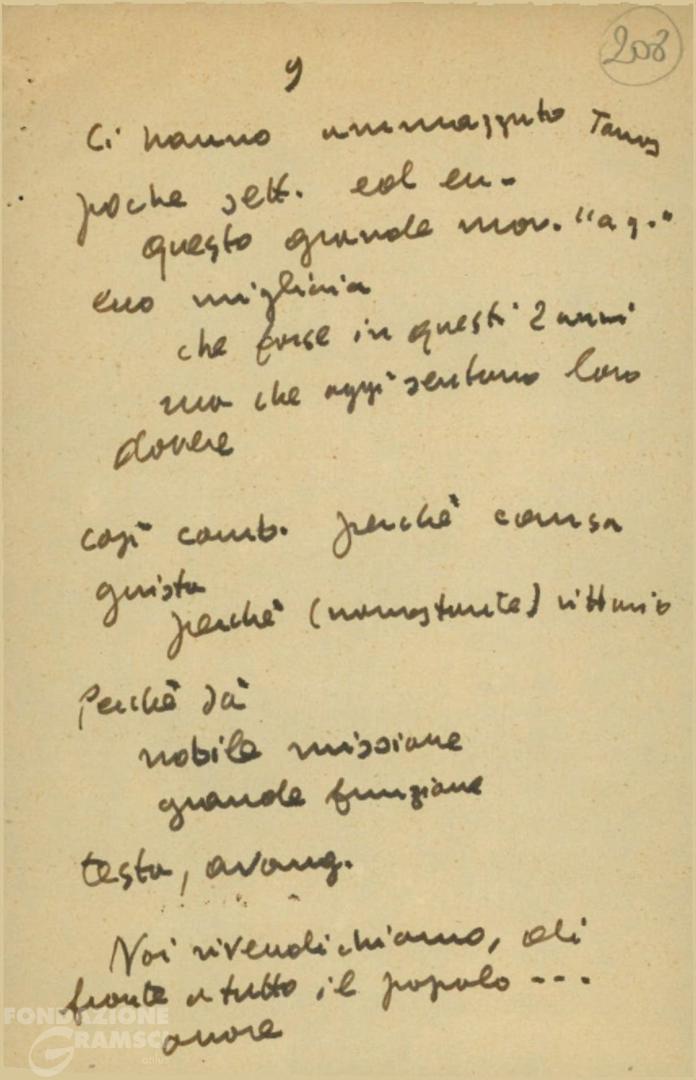 208
9
Ci hanno ammazzato
poche sett. ed en.
questo grande mov. "a g."
eno migliaia
che forse in questi 2 anni
ma che oggi sentano loro
dovere
così comb. perchè causa
giusta
perchè (nonostante) vittorio
Perchè dà
nobile missione
grande funzione
testa, avang.
Noi rivendichiamo, di
fronte a tutto il popolo ---
onore
FONDAZIONE
GRAMSCI
onlus